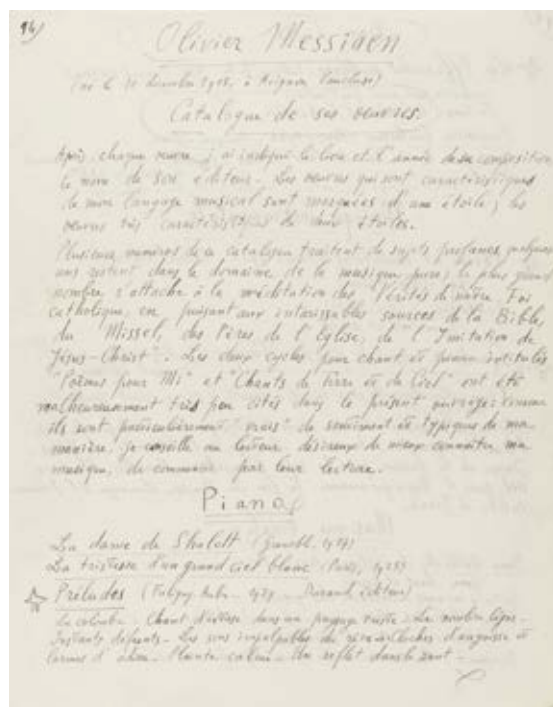 94)
Olivier Messiaen
(né le 10 décembre 1908, à Avignon (Vaucluse)
Catalogue de ses œuvres.
Après chaque œuvre, j'ai indiqué le lieu et l'année de sa composition
le nom de son éditeur. Les œuvres qui sont caractéristiques
de mon langage musical sont marquées d'une étoile; les
œuvres très caractéristiques de deux étoiles.
Plusieurs numéros de ce catalogue traitent de sujets profanes, quelques
uns restent dans le domaine de la musique pure; le plus grand
nombre s'attache à la méditation des Vérités de notre Foi
catholique, en puisant aux intarissables sources de la Bible,
du Missel, des Pères de l'Eglise, de l'Imitation de
Jésus-Christ. Les deux cycles pour chant et piano intitulés
"Poèmes pour Mi" et "Chants de Terre et de Ciel" ont été
malheureusement très peu cités dans le présent ouvrage: comme
ils sont particulièrement "vrais" de sentiment et typiques de ma
manière, je conseille au lecteur désireux de mieux connaître ma
musique, de commencer par leur lecture.
Piano
La dame de Shalott (1917)
La tristesse d'un grand ciel blanc (Paris, 1925)
Préludes (Fuligny, Aube - 1929 - Durand éditeur)
La colombe - Chant d'extase dans un paysage triste - Le nombre léger -
Instants défunts - Les sons impalpables du rêve - cloches d'angoisse et
larmes d'adieu - Plainte calme - Un reflet dans le vent -